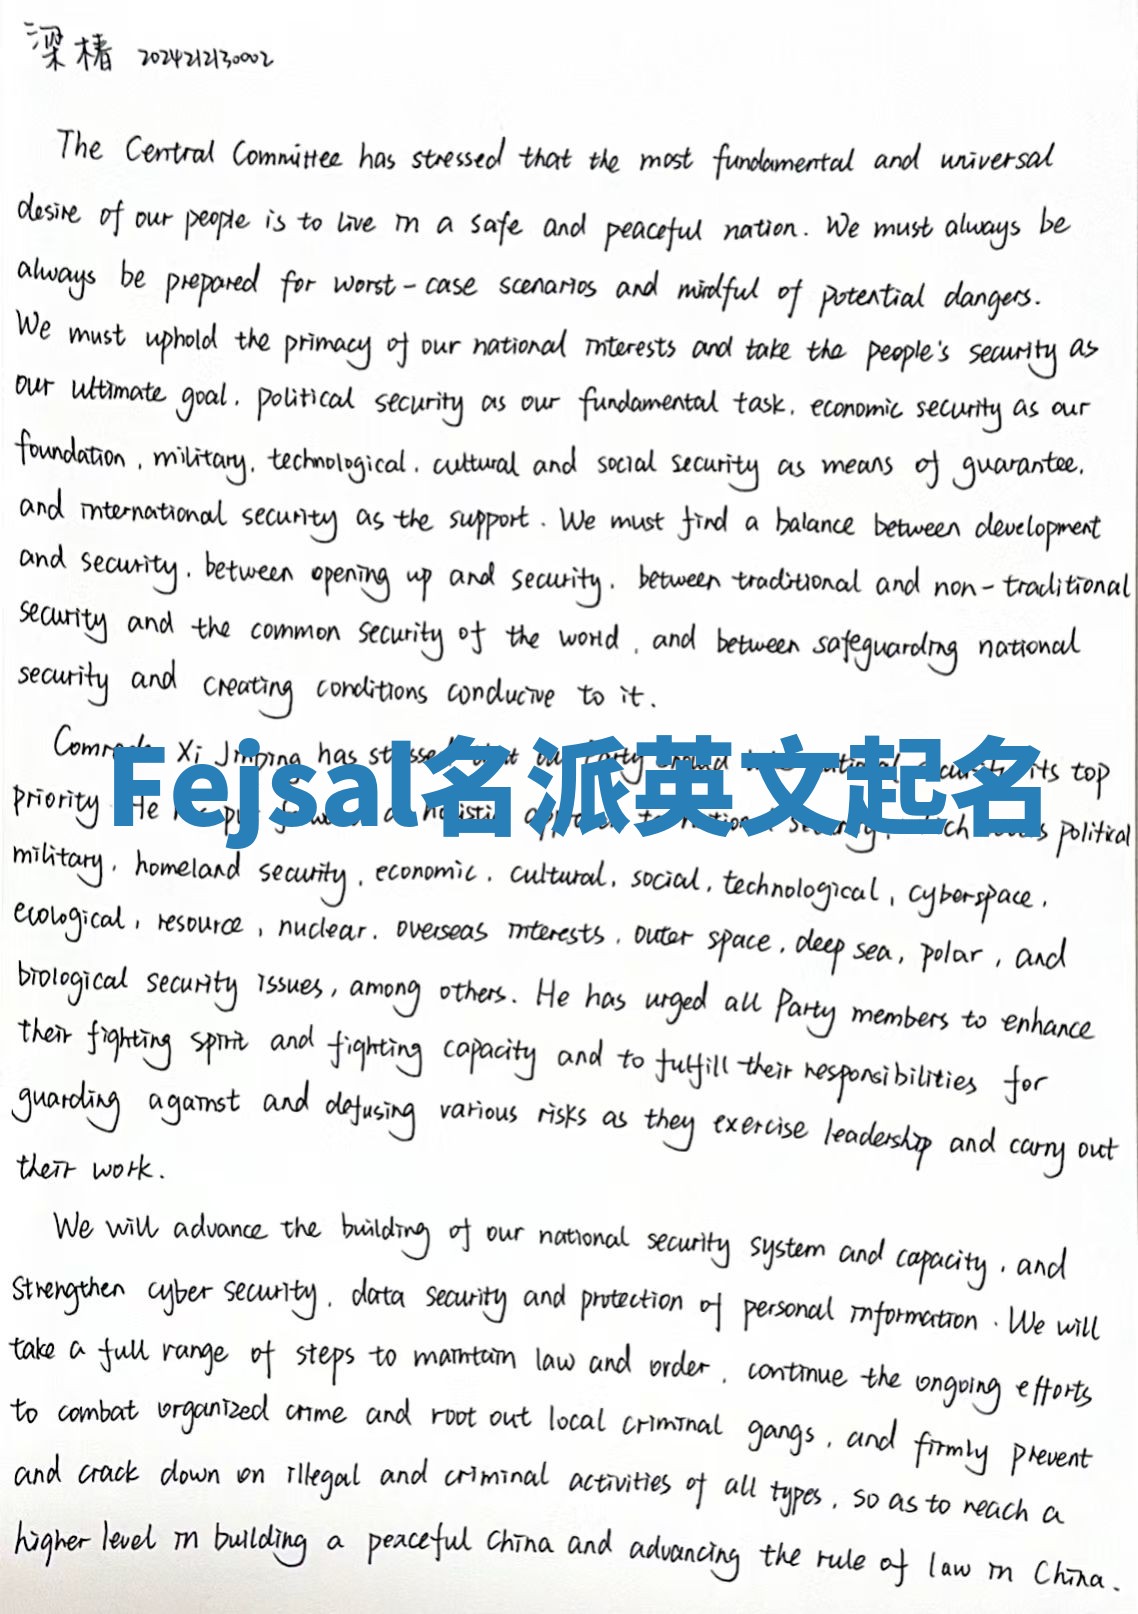 梁椿 2024212130002
The Central Committee has stressed that the most fundamental and universal
desire of our people is to live in a safe and peaceful nation. We must always be
always be prepared for worst-case scenarios and mindful of potential dangers.
We must uphold the primacy of our national interests and take the people's security as
our ultimate goal, political security as our fundamental task, economic security as our
foundation, military, technological, cultural and social security as means of guarantee,
and international security as the support. We must find a balance between development
and security, between opening up and security, between traditional and non-traditional
security and the common security of the world, and between safeguarding national
security and creating conditions conducive to it.
Comrade Xi Jinping has stressed that our Party should national security its top
Fejsal名派英文起名
priority He a holistic to national security, which political
military, homeland security, economic, cultural, social, technological, cyberspace,
ecological, resource, nuclear, overseas interests, outer space, deep sea, polar, and
biological security issues, among others. He has urged all Party members to enhance
their fighting spirit and fighting capacity and to fulfill their responsibilities for
guarding against and defusing various risks as they exercise leadership and carry out
their work.
We will advance the building of our national security system and capacity, and
strengthen cyber security, data security and protection of personal information. We will
take a full range of steps to maintain law and order, continue the ongoing efforts
to combat organized crime and root out local criminal gangs, and firmly prevent
and crack down on illegal and criminal activities of all types, so as to reach a
higher level in building a peaceful China and advancing the rule of law in China.